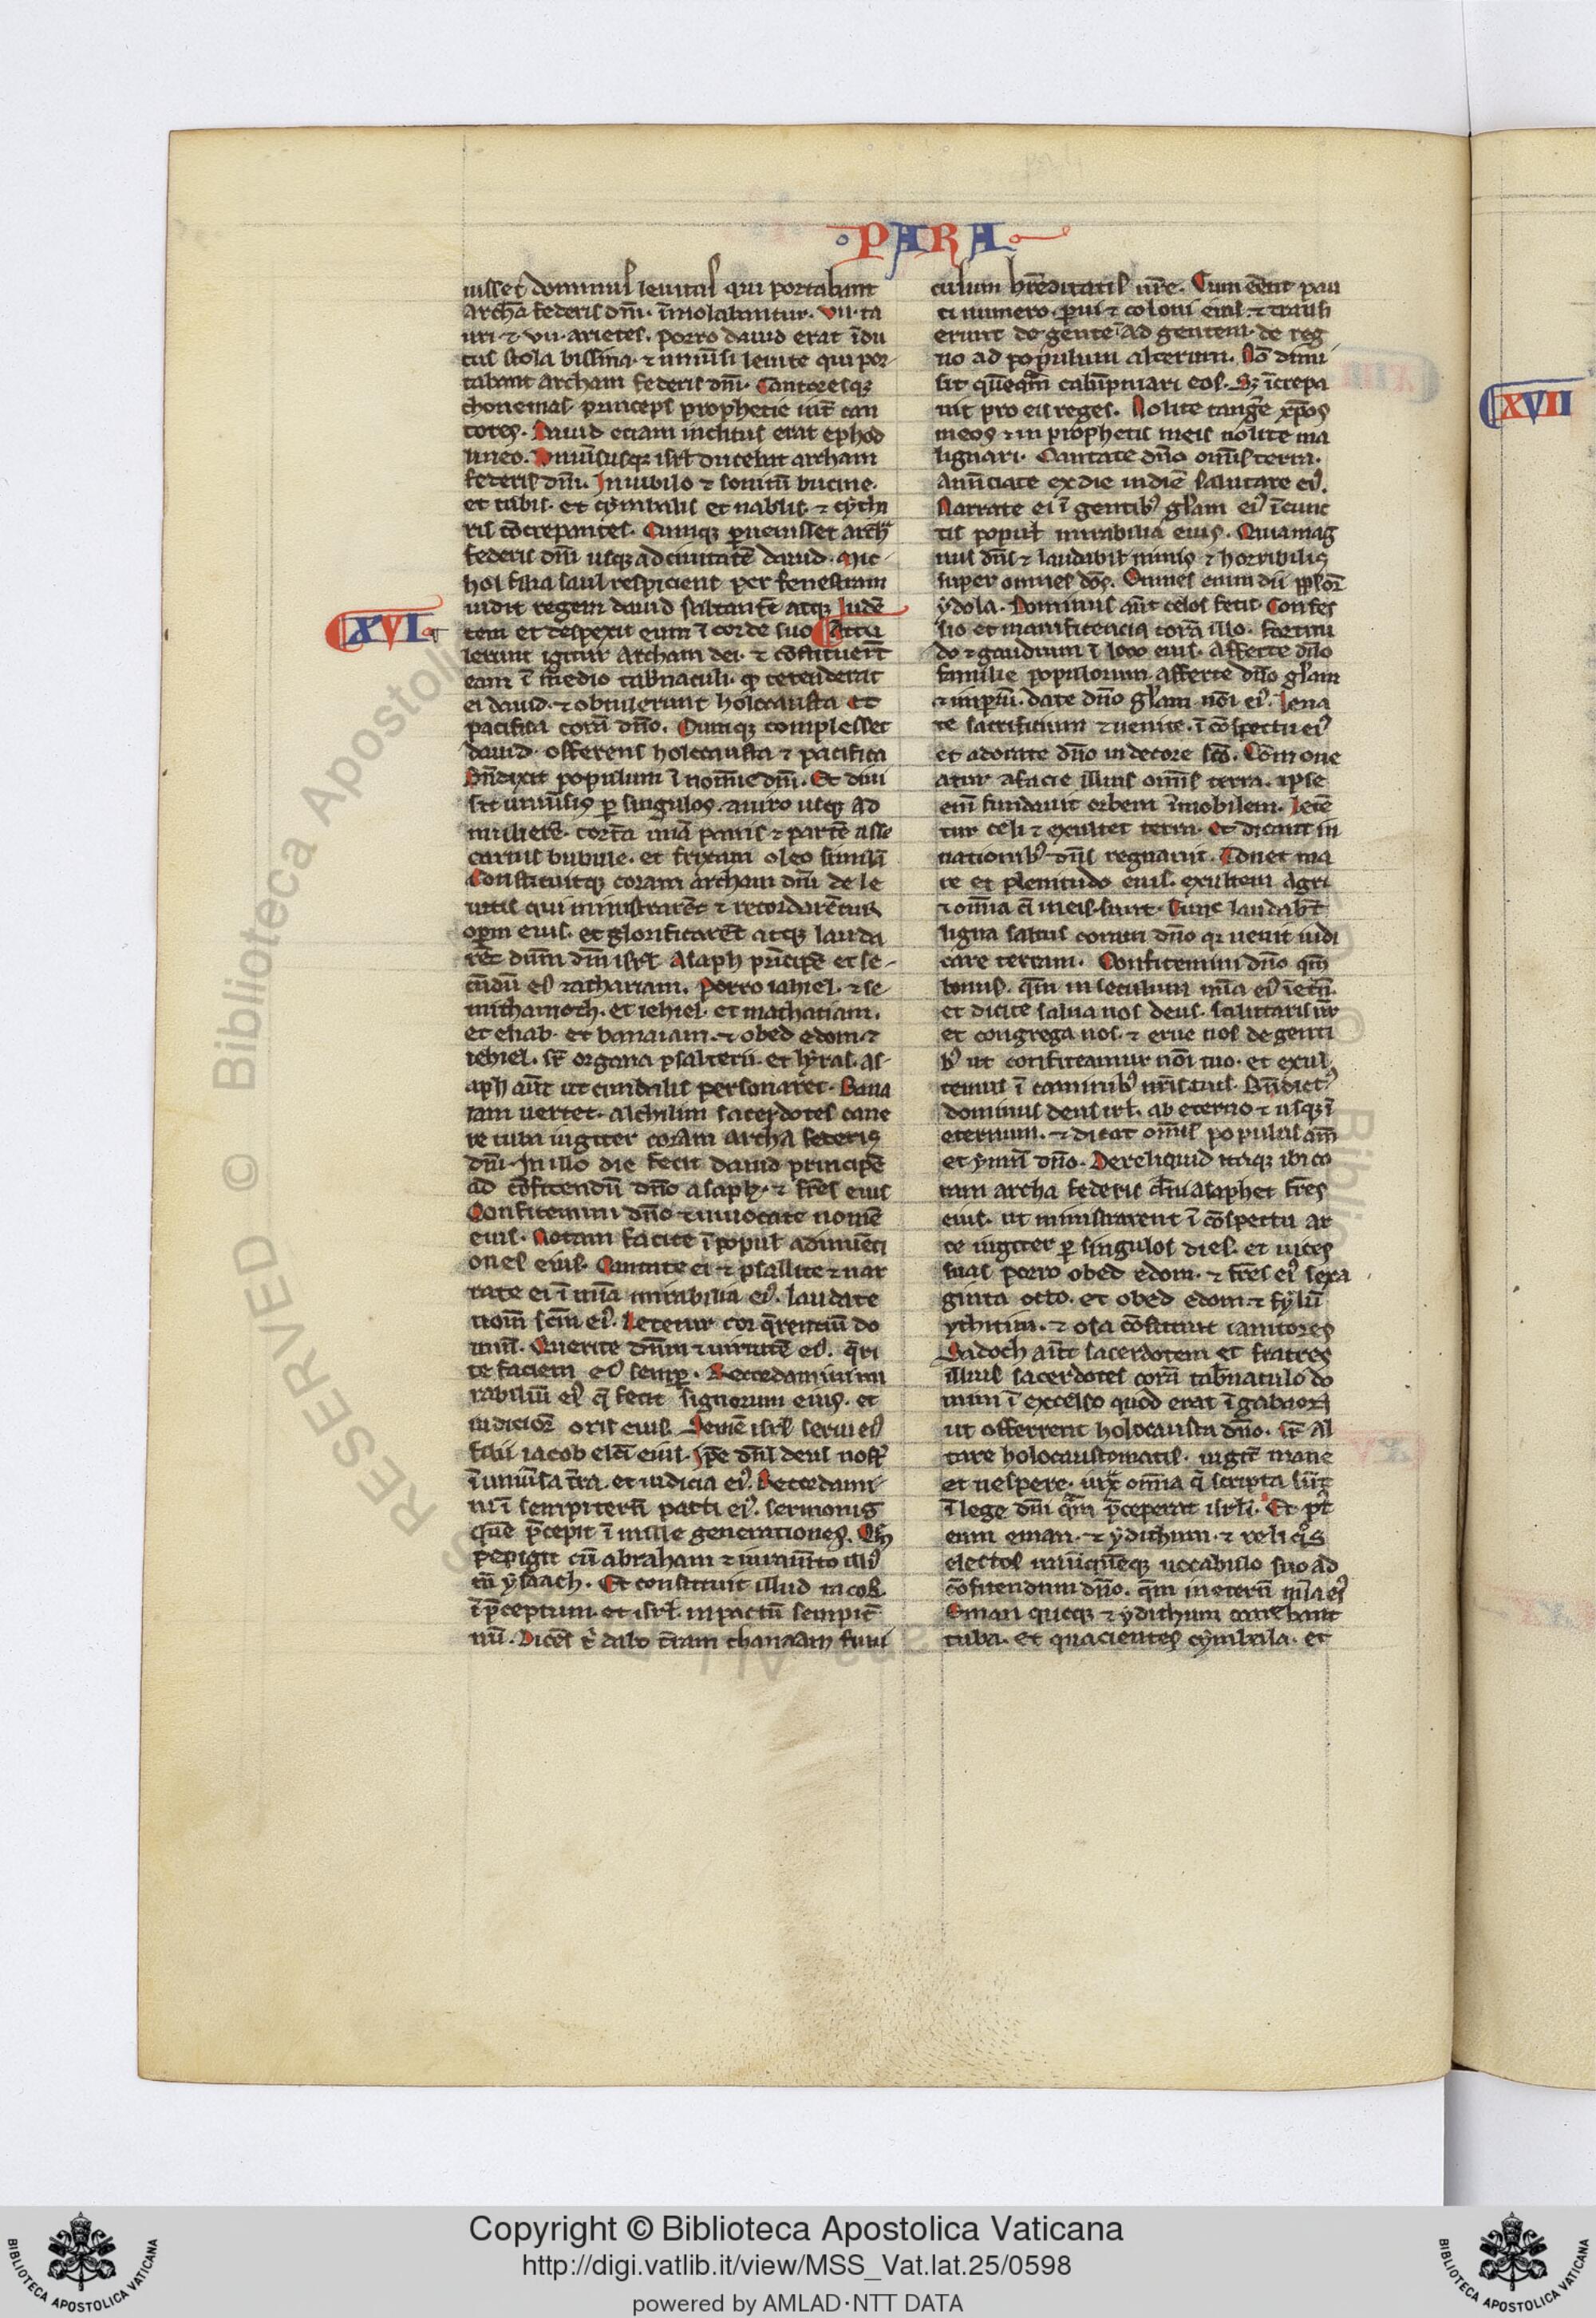 PARA
uisset dominus leuitas qui portabant
archā federis dn̄i · īmolabantur · vii · ta
uri ⁊ vii · arietes . porro dauid erat īdu
tus stola bissina · ⁊ uniūsi leuite qui por
tabant archam federis dn̄i · Cantoresqꝫ
chonenias · princeps prophetie int̄ can
tores . Dauid etiam indutus erat ephod
lineo . Uniūsusqꝫ isrl̄ ducebat archam
federis dn̄i . In iubilo ⁊ sonitū bucine ·
et tubis · et cymbalis et nablis · ⁊ cythr
ris cōcrepantes . Cumqꝫ ꝑuenisset archā
federis dn̄i usqꝫ ad ciuitatē dauid · Mic
hol filia saul respiciens per fenestram
uidit regem dauid saltant̄e atqꝫ ludē
tem et despexit eum ī corde suo Attu
XVI
lerunt igitur Archam dei · ⁊ cōstituer̄t
eam ī medio tabn̄aculi · qđ tetenderat
ei dauid · ⁊ obtulerunt holocausta et
pacifica corā dn̄o . Cumqꝫ complesset
dauid · offerens holocausta ⁊ pacifica
Bn̄dixit populum ī noīe dn̄i . Et diui
sit uniūsis ꝑ singulos · a uiro usqꝫ ad
mulierē · tortā unā panis ⁊ partē asse
carnis bubule · et frixam oleo similā
Constituitqꝫ coram archam dn̄i de le
uitis qui ministrarēt ⁊ recordarētur
oꝑm eius · et glorificarēt atqꝫ lauda
rēt dūm dm̄ isrl̄ Asaph prīcipē et se
cūdū eiꝰ zachariam . porro iahiel · ⁊ se
mithamoth · et iehiel · et mathatiam ·
et eliab · et banaiam · ⁊ obed edom · ⁊
iehiel · sr̄ organa psalterii · et lyras · as
aph aūt ut cimbalis personaret · Bana
iam uertet · alchilim sacerdotes cane
re tuba iugiter coram archa federis
dn̄i · In illo die fecit dauid principē
ad cōfitendū dn̄o asaph · ⁊ fr̄es eius
Confitemini dn̄o ⁊ inuocate nomē
eius · Notam facite ī popul̄ adinuēti
ones eius · Cantate ei ⁊ psallite ⁊ nar
rate ei ī uniā mirabilia eiꝰ · laudate
nom̄ scm̄ eiꝰ · Letetur cor q̄rentiū do
minū · Querite dn̄m ⁊ uirtutē eiꝰ · q̄ri
te faciem eiꝰ semꝑ · Recordamini mi
rabiliū eiꝰ q̄ fecit signorum eius · et
iudicioꝝ oris eius · Semē isrl̄ serui eiꝰ
filii iacob elc̄i eius · Ipse dn̄s deus nost̄
ī uniūsa t̄ra · et iudicia eiꝰ · Recordami
ni ī sempitern̄ pacti eiꝰ · sermonis
quē p̄cepit ī mille generationes · Qđ
pepigit cū abraham ⁊ iuram̄to illiꝰ
cū ysaach · Et constituit illud iacob
ī p̄ceptum · et isrl̄ · in pactū sempit̄
nū · Dicēs t̄ dabo t̄ram chanaam funi
culum hr̄editatis ur̄e · Cum eēnt pau
ci numero · ꝑui ⁊ coloni eius ⁊ transi
erunt de gente ī ad gentem · de reg
no ad populum alterum · Nō dimi
sit quēqm̄ calūpniari eos · Sꝫ īcrepa
uit pro eis reges . Nolite tangr̄e xp̄os
meos ⁊ in prophetis meis nolite ma
lignari · Cantate dn̄o oīs terra ·
anūciate ex die in diē salutare eiꝰ ·
Narrate ei ī gentibꝰ gl̄am eiꝰ ī cunc
tis popul̄ mirabilia eius · Quia mag
nus dn̄s ⁊ laudabil̄ nimis ⁊ horribilis
super omnes dōs · Omnes enim dii pp̄loꝝ
ydola · Dominus aūt celos fecit · Confes
sio et manificencia corā illo · fortitu
do ⁊ gaudium ī loco eius · Afferte dn̄o
familie populorum · afferte dn̄o gl̄am
⁊ imꝑiū · date dn̄o gl̄am nōi eiꝰ · leua
te sacrificium ⁊ uenite · ī cōspectu eiꝰ
et adorate dn̄o in decore sc̄o · Cōmoue
atur a facie illius oīs terra · ipse
eīm fundauit orbem īmobilem · letē
tur celi ⁊ exultet terra · et dicant in
nationibꝰ dn̄s regnauit · Tonet ma
re et plenitudo eius · exultent agri
⁊ om̄ia q̄ ī meis sunt · Tunc laudabt̄
ligna saltus coram dn̄o qꝛ uenit iudi
care terram · Confitemini dn̄o qm̄
bonus · qm̄ in seculum mīa eiꝰ ī etn̄ ·
et dicite salua nos deus · saluttaris nr̄
et congrega nos · ⁊ erue nos de genti
bꝰ ut confiteamur nōi tuo · et exul
temus ī carminibꝰ nr̄is tuis · Bn̄dictꝰ
dominus deus isrl̄ · ab eterno ⁊ usqꝫ ī
eternum · ⁊ dicat oīs populus am̄
et ymn̄ dn̄o · Dereliquid itaqꝫ ibi co
ram archa federis dn̄i asaph et fr̄es
eius · ut ministrarent ī cōspectu ar
ce iugiter ꝑ singulos dies · et uices
suas porro obed edom · ⁊ fr̄es eiꝰ sexa
ginta octo · et obed edom · ⁊ fyliū
ythitim · ⁊ osa cōstituit ianitores
Sadoch aūt sacerdotem et fratres
illius sacerdotes corā tabn̄aculo do
mini ī excelso quod erat ī gabaoꝝ
ut offerrent holocausta dn̄o · sr̄ al
tare holocaustomatis · iugit̄ mane
et uespere · iux̄ om̄ia q̄ scripta sūt
ī lege dn̄i qm̄ p̄ceperat isrl̄i · Et pꝰt
eum eman · ⁊ ydithum · ⁊ reliqͦs
electos unūqueqꝫ uocabulo suo ad
cōfitendum dn̄o · qm̄ in etern̄ mīa eiꝰ
Eman queqꝫ ⁊ ydithum canebant
tuba · et quacientes cymbala · et
XVII
Copyright © Biblioteca Apostolica Vaticana
http://digi.vatlib.it/view/MSS_Vat.lat.25/0598
powered by AMLAD·NTT DATA
BIBLIOTECA APOSTOLICA VATICANA
BIBLIOTECA APOSTOLICA VATICANA